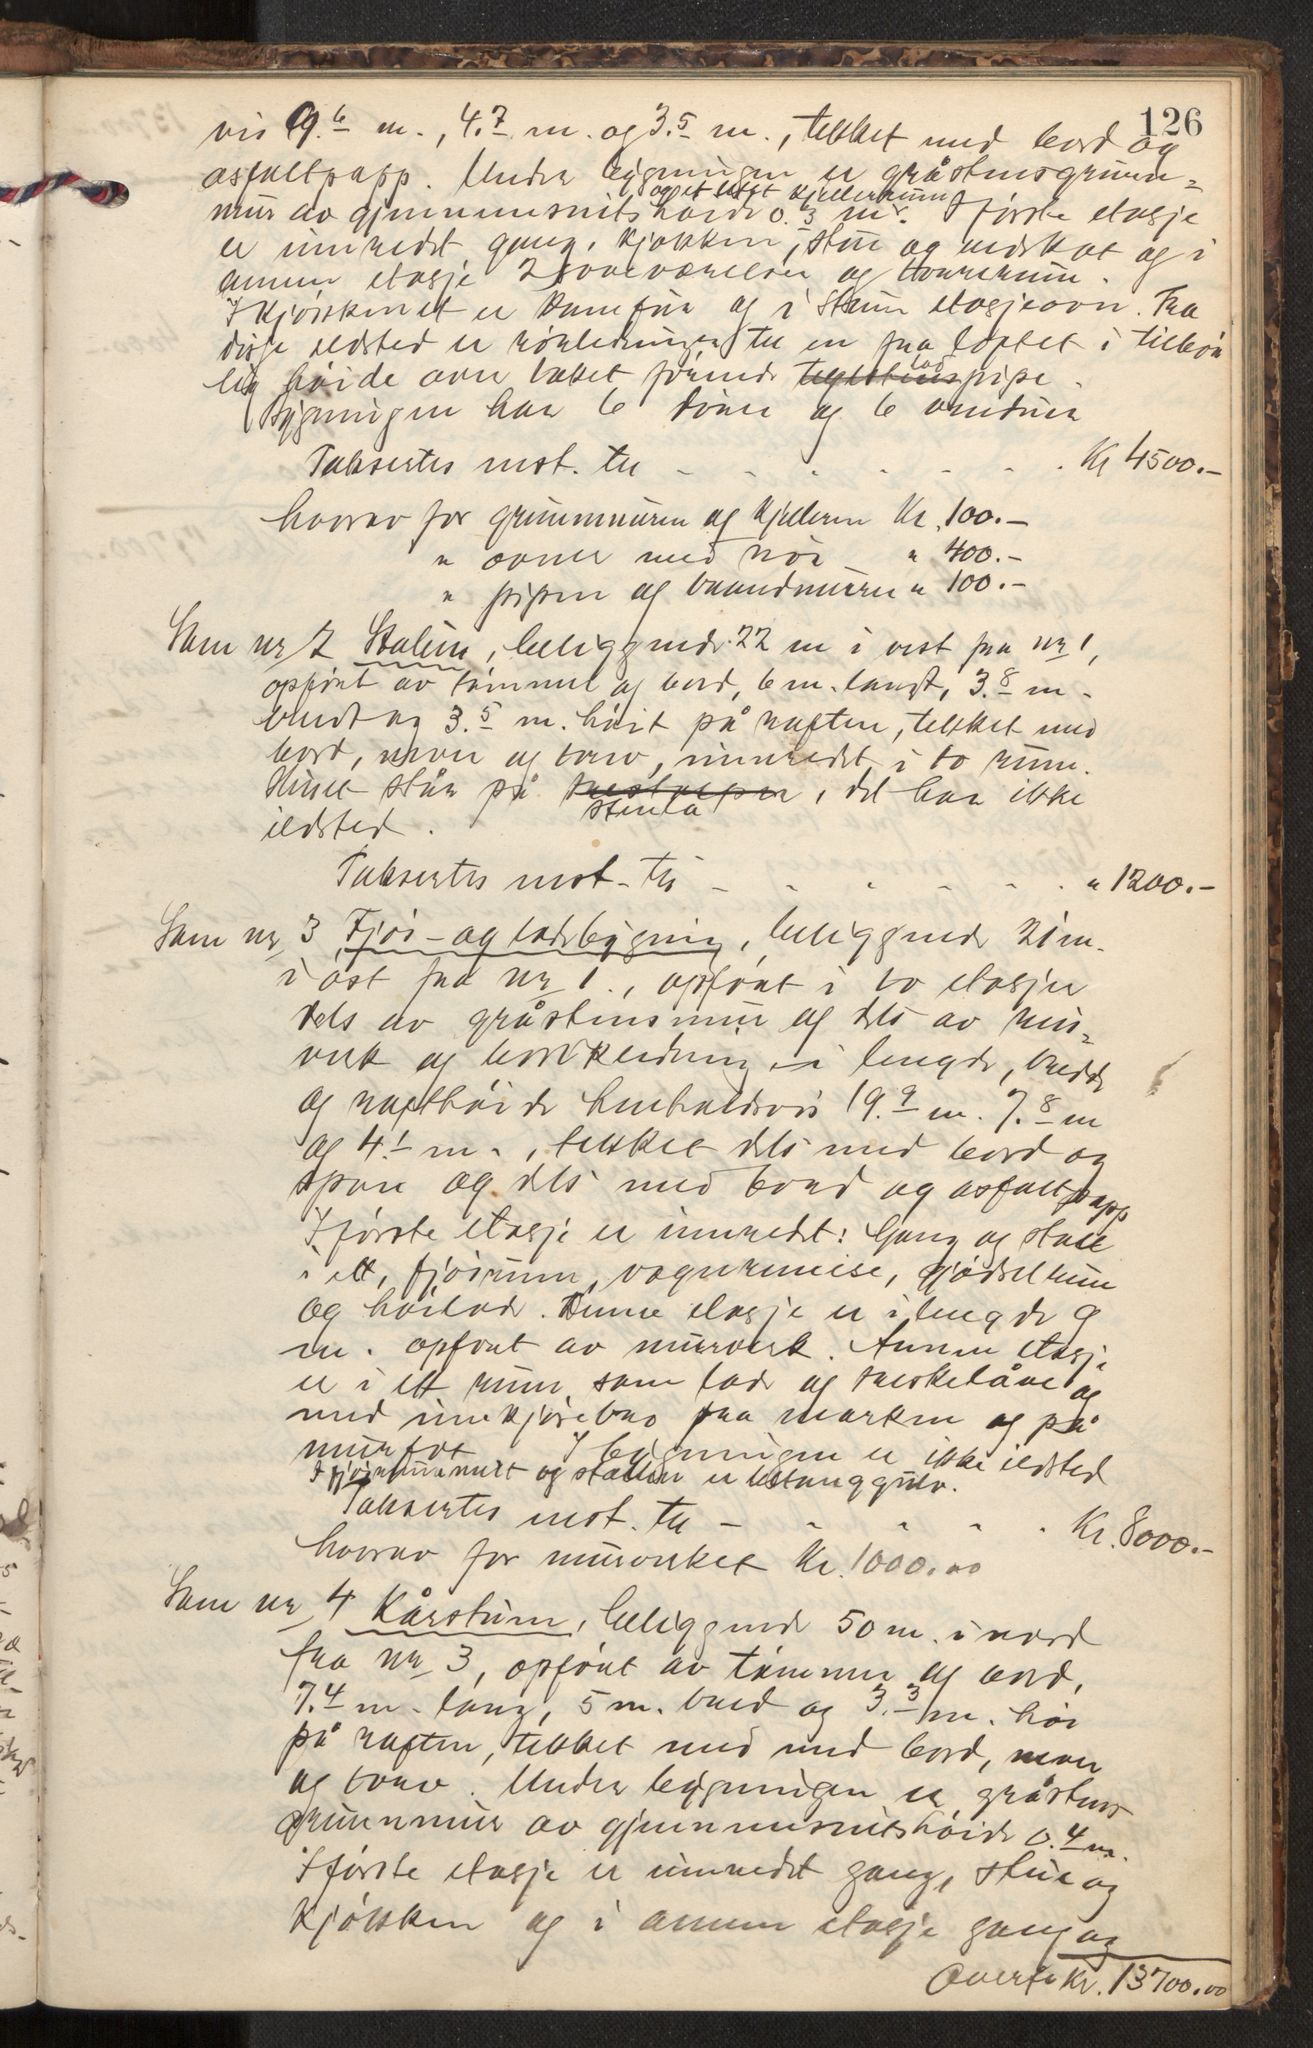 126
vis 9.6 m., 4.7 m. og 3.5 m., tekket med bord og
asfaltpapp. Under bygningen er gråstensgrunn=
mur av gjennemsnitshøide 0.3 m. og et litet kjellerrum I første etasje
er innredet gang, kjøkken, stue og vedskot og i
annen etasje 2 soveværelser og
I kjøkkenet er komfur og i stuen etasjeovn. Fra
disse ildsted er rørledninger til en fra loftet i tilbør
lig høide over taket førende pipe.
Bygningen har 6 dører og 6 vinduer
Takseres inst. til - - - - - - Kr 4500.-
hvorav for grunnmuren og kjelleren Kr. 100.-
" ovner med rør " 400.-
" pipen og brandmuren " 100.-
Som nr 2 Stabur, beliggende 22 m i vest fra nr 1,
opført av tømmer og bord, 6 m. langt, 3.8 m.
bredt og 3.5 m. høit på raften, tekket med
bord, never og torv, innredet i to rum.
Huset står på stenla, det har ikke
ildsted.
Takseres inst. til - - - - - - " 1200.-
Som nr 3 Fjøs- og ladebygning, beliggende 21 m.
i øst fra nr 1., opført i to etasjer
dels av gråstensmur og dels av reis=
verk og bordklædning i lengde, bredde
og rafthøide henholdsvis 19.9 m. 7.8 m
og 4.1 m., tekket dels med bord og
spon og dels med bord og asfaltpapp
I første etasje er innredet: Gang og stall
i ett, fjøsrum, vognremise, gjødselrum
og høilade. Denne etasje er i lengde 9
m. opført av murverk. Annen etasje
er i ett rum som lade og treskelåve og
med innkjørebro fra marken og på
murfot I bygningen er ikke ildsted
I fjøsrummet og stallen er betonggulv.
Takseres inst. til - - - - - Kr. 8000.-
hvorav for murverket Kr. 1000.00
Som nr 4 Kårstuen, beliggende 50 m. i nord
fra nr 3, opført av tømmer og bord,
7.4 m. lang, 5 m. bred og 3.3 m. høi
på raften, tekket med med bord, never
og torv. Under bygningen er gråstens
grunnmur av gjennemsnitshøide 0.4 m.
I første etasje er innredet gang, stue og
kjøkken og i annen etasje gang og
Overf. Kr. 13700.00